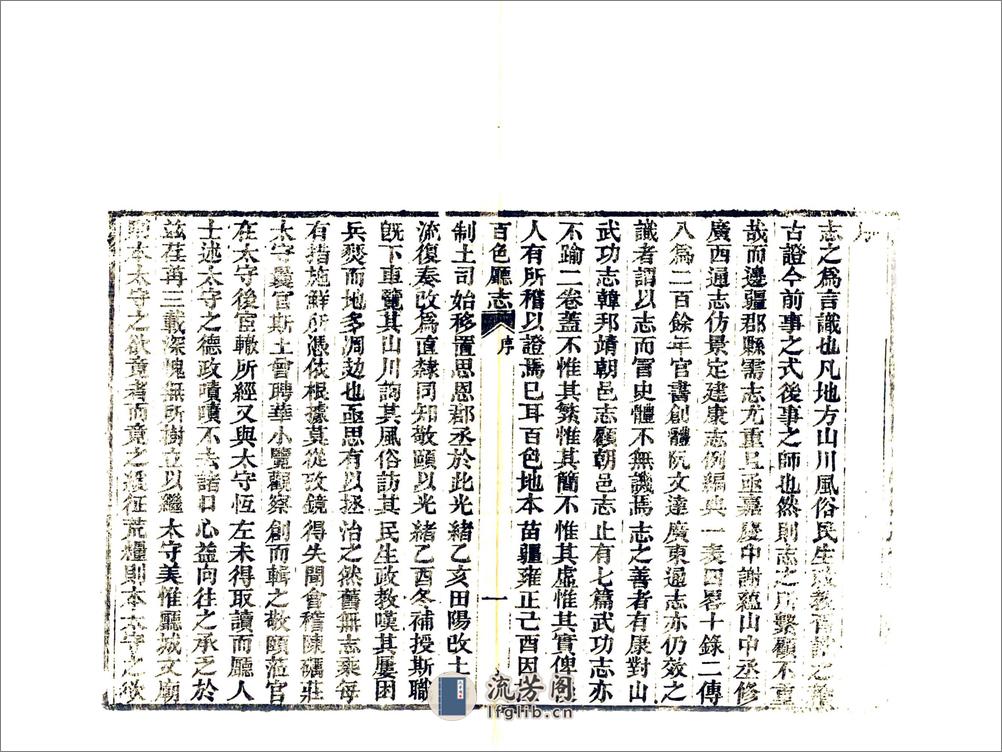 序
志之為言識也凡地方山川風俗民生政教皆記之
古證今前事之式後事之師也然則志之所繫顧不重
哉而邊疆郡縣需志尤重且亟嘉慶中謝蘊山中丞修
廣西通志仿景定建康志例編典一表四畧十錄二傳
八為二百餘年官書創體阮文達廣東通志亦仍效之
識者謂以志而冒史體不無譏焉志之善者有康對山
武功志韓邦靖朝邑志顧朝邑志止有七篇武功志亦
不踰二卷蓋不惟其繁惟其簡不惟其虛惟其實俾
人有所稽以證焉巳耳百色地本苗疆雍正己酉因
百色廳志
序
一
制土司始移置思恩郡丞於此光緒乙亥田陽改土
流復奏改為直隸同知敬頤以光緒乙酉冬補授斯職
旣下車覽其山川詢其風俗訪其民生政教嘆其屢困
兵燹而地多凋攰也亟思有以拯治之然舊無志乘每
有措施鮮所憑依根據莫從政鏡得失聞會稽陳礪莊
太守曩官斯土曾聘華小覽觀察創而輯之敬頤蒞官
在太守後宦轍所經又與太守恆左未得取讀而廳人
士述太守之德政嘖嘖不去諸口心益向往之承乏於
茲荏苒三載深愧無所樹立以繼太守美惟廳城文廟
本太守之欲竟者而竟之 征荒糧則本太守之欲
流芳阁
lfglib.cn